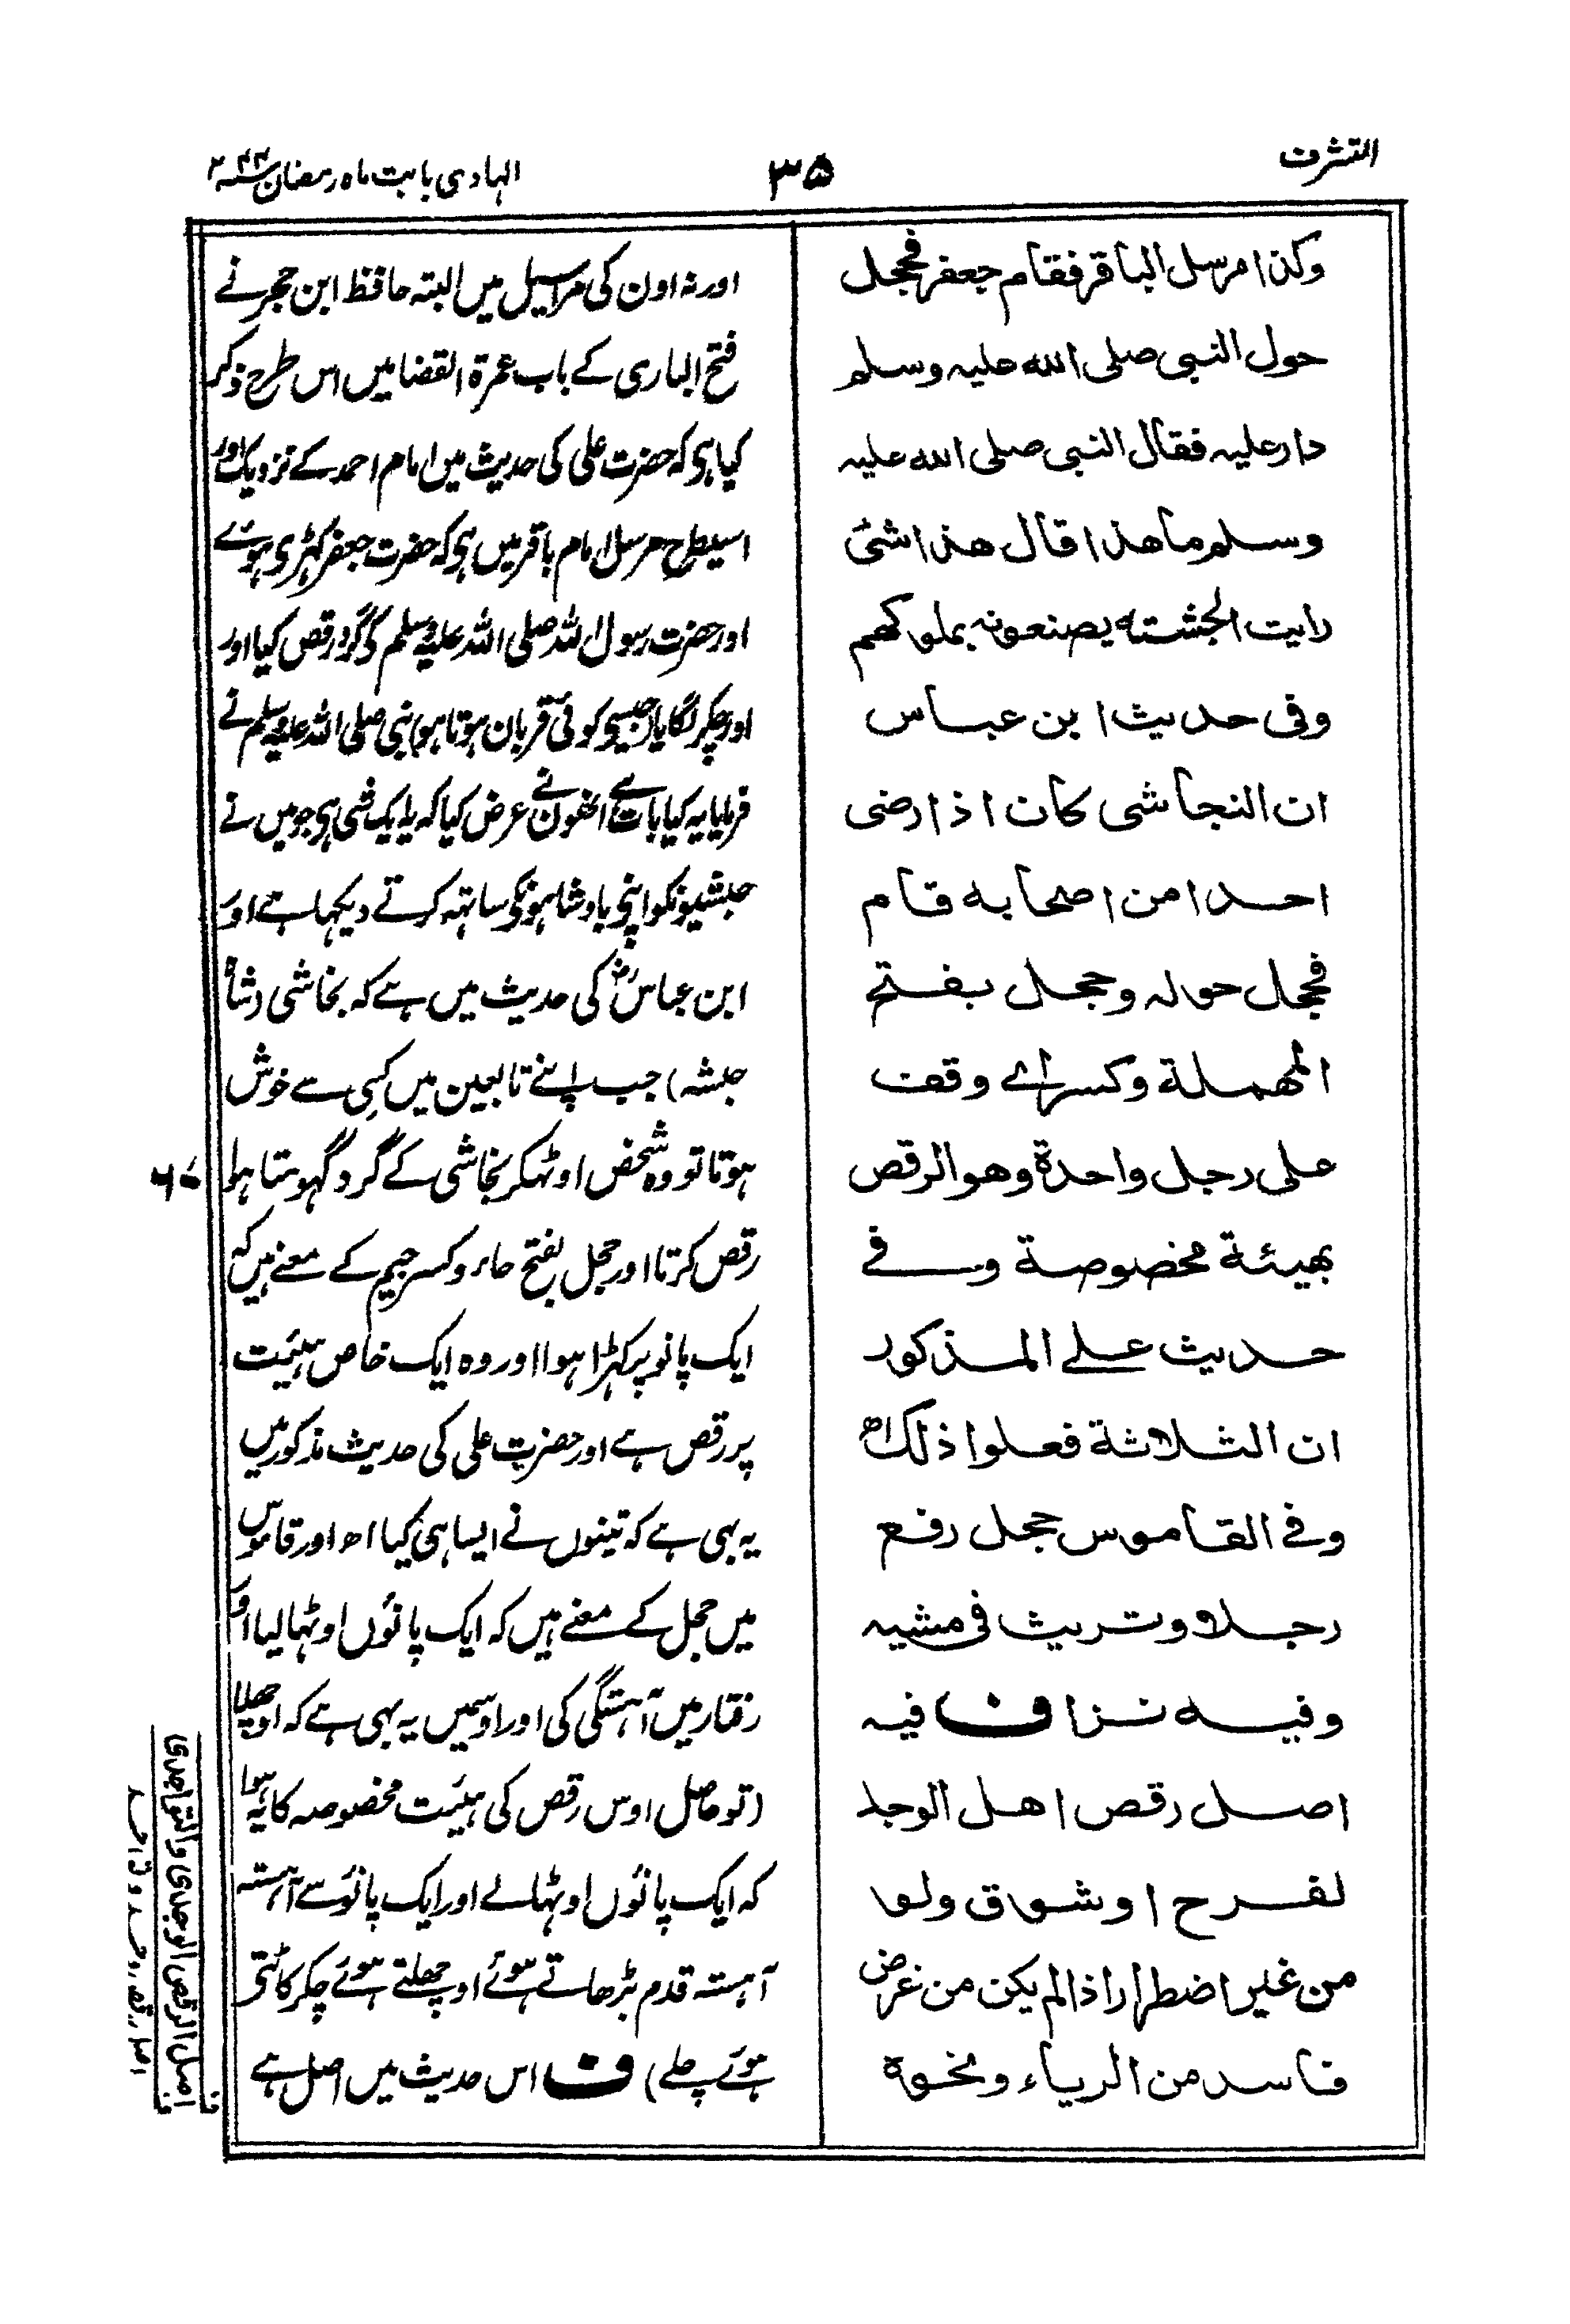 التشرف
۳۵
الہادی بابت ماہ رمضان ۴۴
وکذا مرسل الباقر فقام جعفر فحجل
حول النبی صلی اللہ علیہ وسلم
دار علیہ فقال النبی صلی اللہ علیہ
وسلم ما هذا قال هذا شئ
رایت الحبشة یصنعونہ بملوکهم
وفی حدیث ابن عباس
ان النجاشی کان اذا رضی
احدا من اصحابه قام
فحجل حولہ وحجل بفتح
المهملة وکسر ای وقف
علی رجل واحدة وهو الرقص
بهیئة مخصوصة وفے
حدیث علے المذکور
ان الثلاثة فعلوا ذلک اھ
وفے القاموس حجل رفع
رجلا وتریث فی مشیہ
وفیه نزا ف فیہ
اصل رقص اهل الوجد
لفرح او شوق ولو
من غیر اضطرار اذا لم یکن من غرض
فاسد من الریاء ونحوہ
اور نہ اون کی مراسیل میں البتہ حافظ ابن حجر نے
فتح الباری کے باب عمرۃ القضا میں اس طرح ذکر
کیا ہی کہ حضرت علی کی حدیث میں امام احمد کے نزدیک اور
اسیطرح مرسل امام باقر میں ہی کہ حضرت جعفر کہڑی ہوئے
اور حضرت رسول اللہ صلی اللہ علیہ وسلم کی گرد رقص کیا اور
اور چکر لگایا (جیسی کوئی قربان ہوتا ہو) نبی صلی اللہ علیہ وسلم نے
فرمایا یہ کیا بات ہے انھون نے عرض کیا کہ یہ ایک شی ہی جو میں نے
حبشیونکو اپنی بادشاہونکی ساتھہ کرتے دیکہا ہے اور
ابن عباسؓ کی حدیث میں ہے کہ نجاشی (شاہ
حبشہ) جب اپنے تابعین میں کسی سے خوش
ہوتا تو وہ شخص اوٹہکر نجاشی کے گرد گہومتا ہوا
رقص کرتا اور حجل بفتح حاء وکسر جیم کے معنے ہیں کہ
ایک پانو پر کہڑا ہوا اور وہ ایک خاص ہیئت
پر رقص ہے اور حضرت علی کی حدیث مذکور میں
یہ بہی ہے کہ تینوں نے ایسا ہی کیا اھ اور قاموس
میں حجل کے معنے ہیں کہ ایک پانؤں اوٹہا لیا اور
رفتار میں آہستگی کی اور اوسمیں یہ بہی ہے کہ اوچھلا
(تو حاصل اوس رقص کی ہیئت مخصوصہ کا یہ ہوا
کہ ایک پانؤں اوٹہالے اور ایک پانؤ سے آہستہ
آہستہ قدم بڑھاتے ہوئے اوچھلتے ہوئے چکر کاٹتی
ہوئے چلے) ف اس حدیث میں اصل ہے
۶۷
ف اصل الرقص الوجدی والتواجدی
ف اصل رقص وجد و تواجد